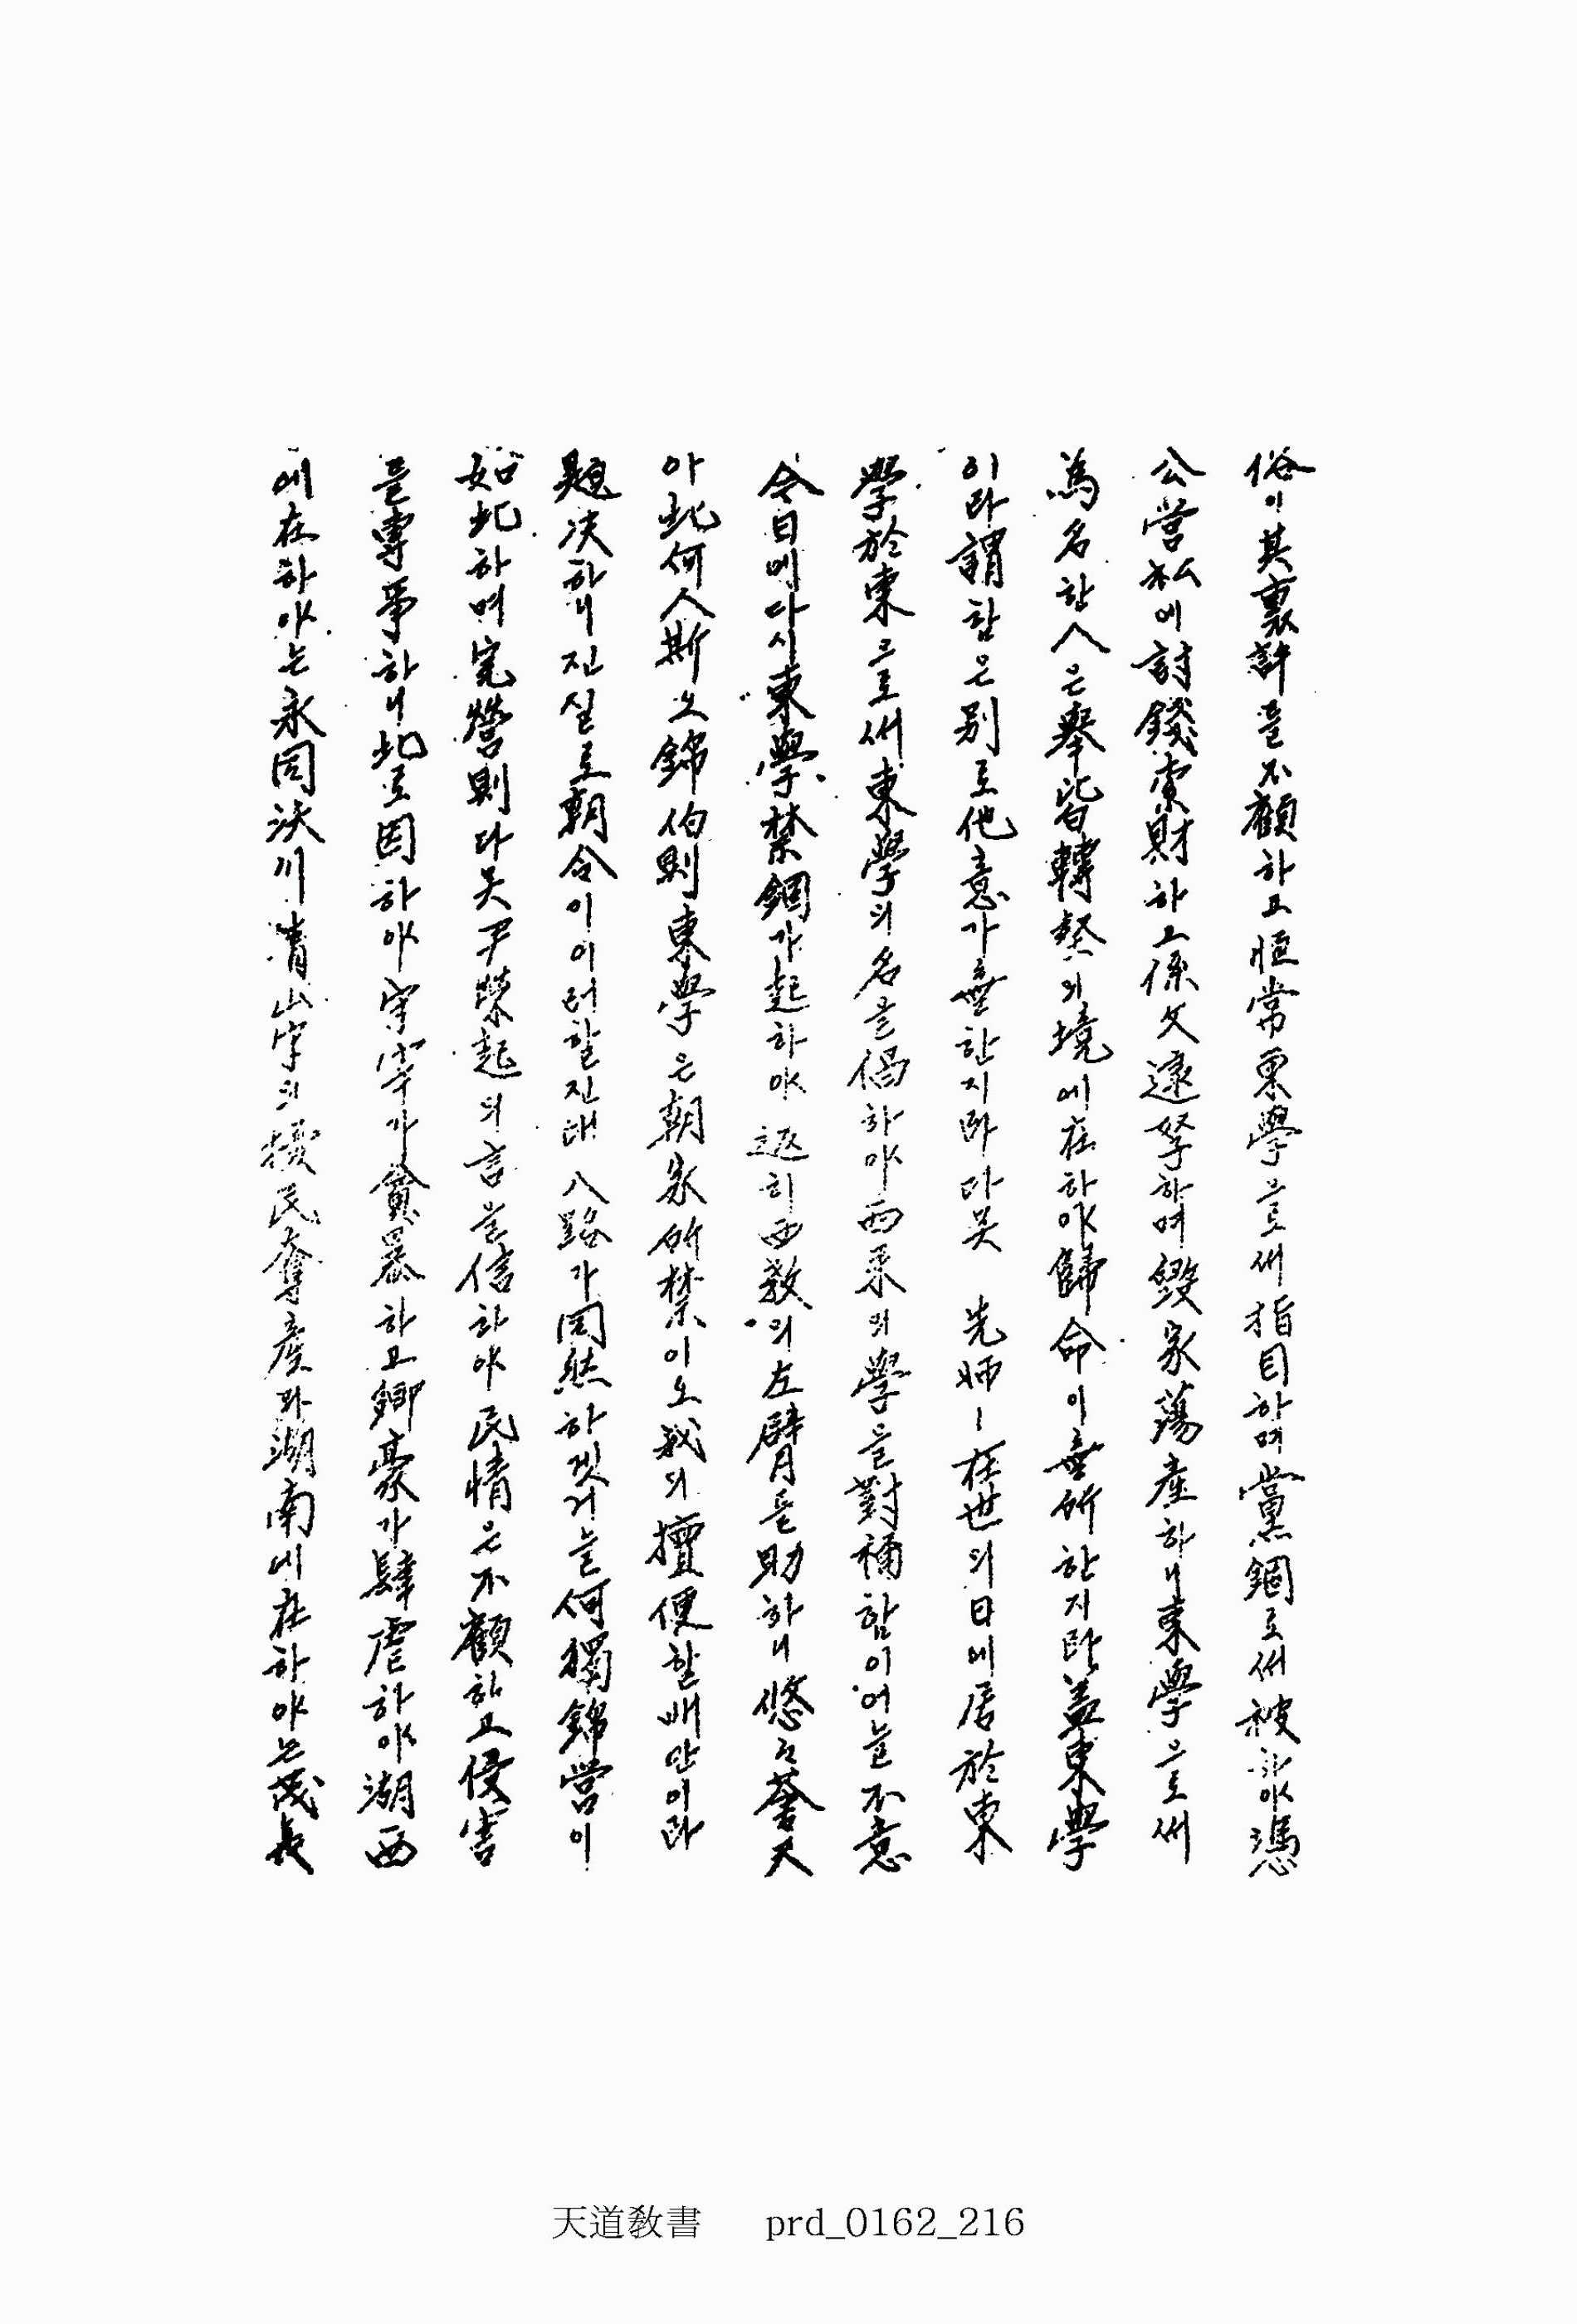 俗이其裏許를不顧하고恒常東學으로써指目하며黨錮로써被하야憑
公営私에討錢索財하고係父逮孥하며毀家蕩産하니東學으로써
為名한人은擧皆轉壑의境에在하야歸命이無所한지라盖東學
이라謂함은别로他意가無한지라다못 先師ㅣ在世의日에居於東
學於東으로써東學의名을偈하야西來의學을對補함이어늘不意
今日에다시東學禁錮가起하야返히西敎의左臂를助하니悠々蒼天
아此何人斯오錦伯則東學은朝家所禁이오我의擅便할배안이라
題决하니진실로朝令이이러할진대八路가同然하겟거늘何獨錦営이
如此하며完營則다못尹榮起의言을信하야民情은不顧하고侵害
를專事하니此로因하야守宰가貪暴하고鄕豪가肆虐하야湖西
에在하야는永同沃川靑山守의擾民奪産과湖南에在하야는茂長
天道敎書 prd_0162_216